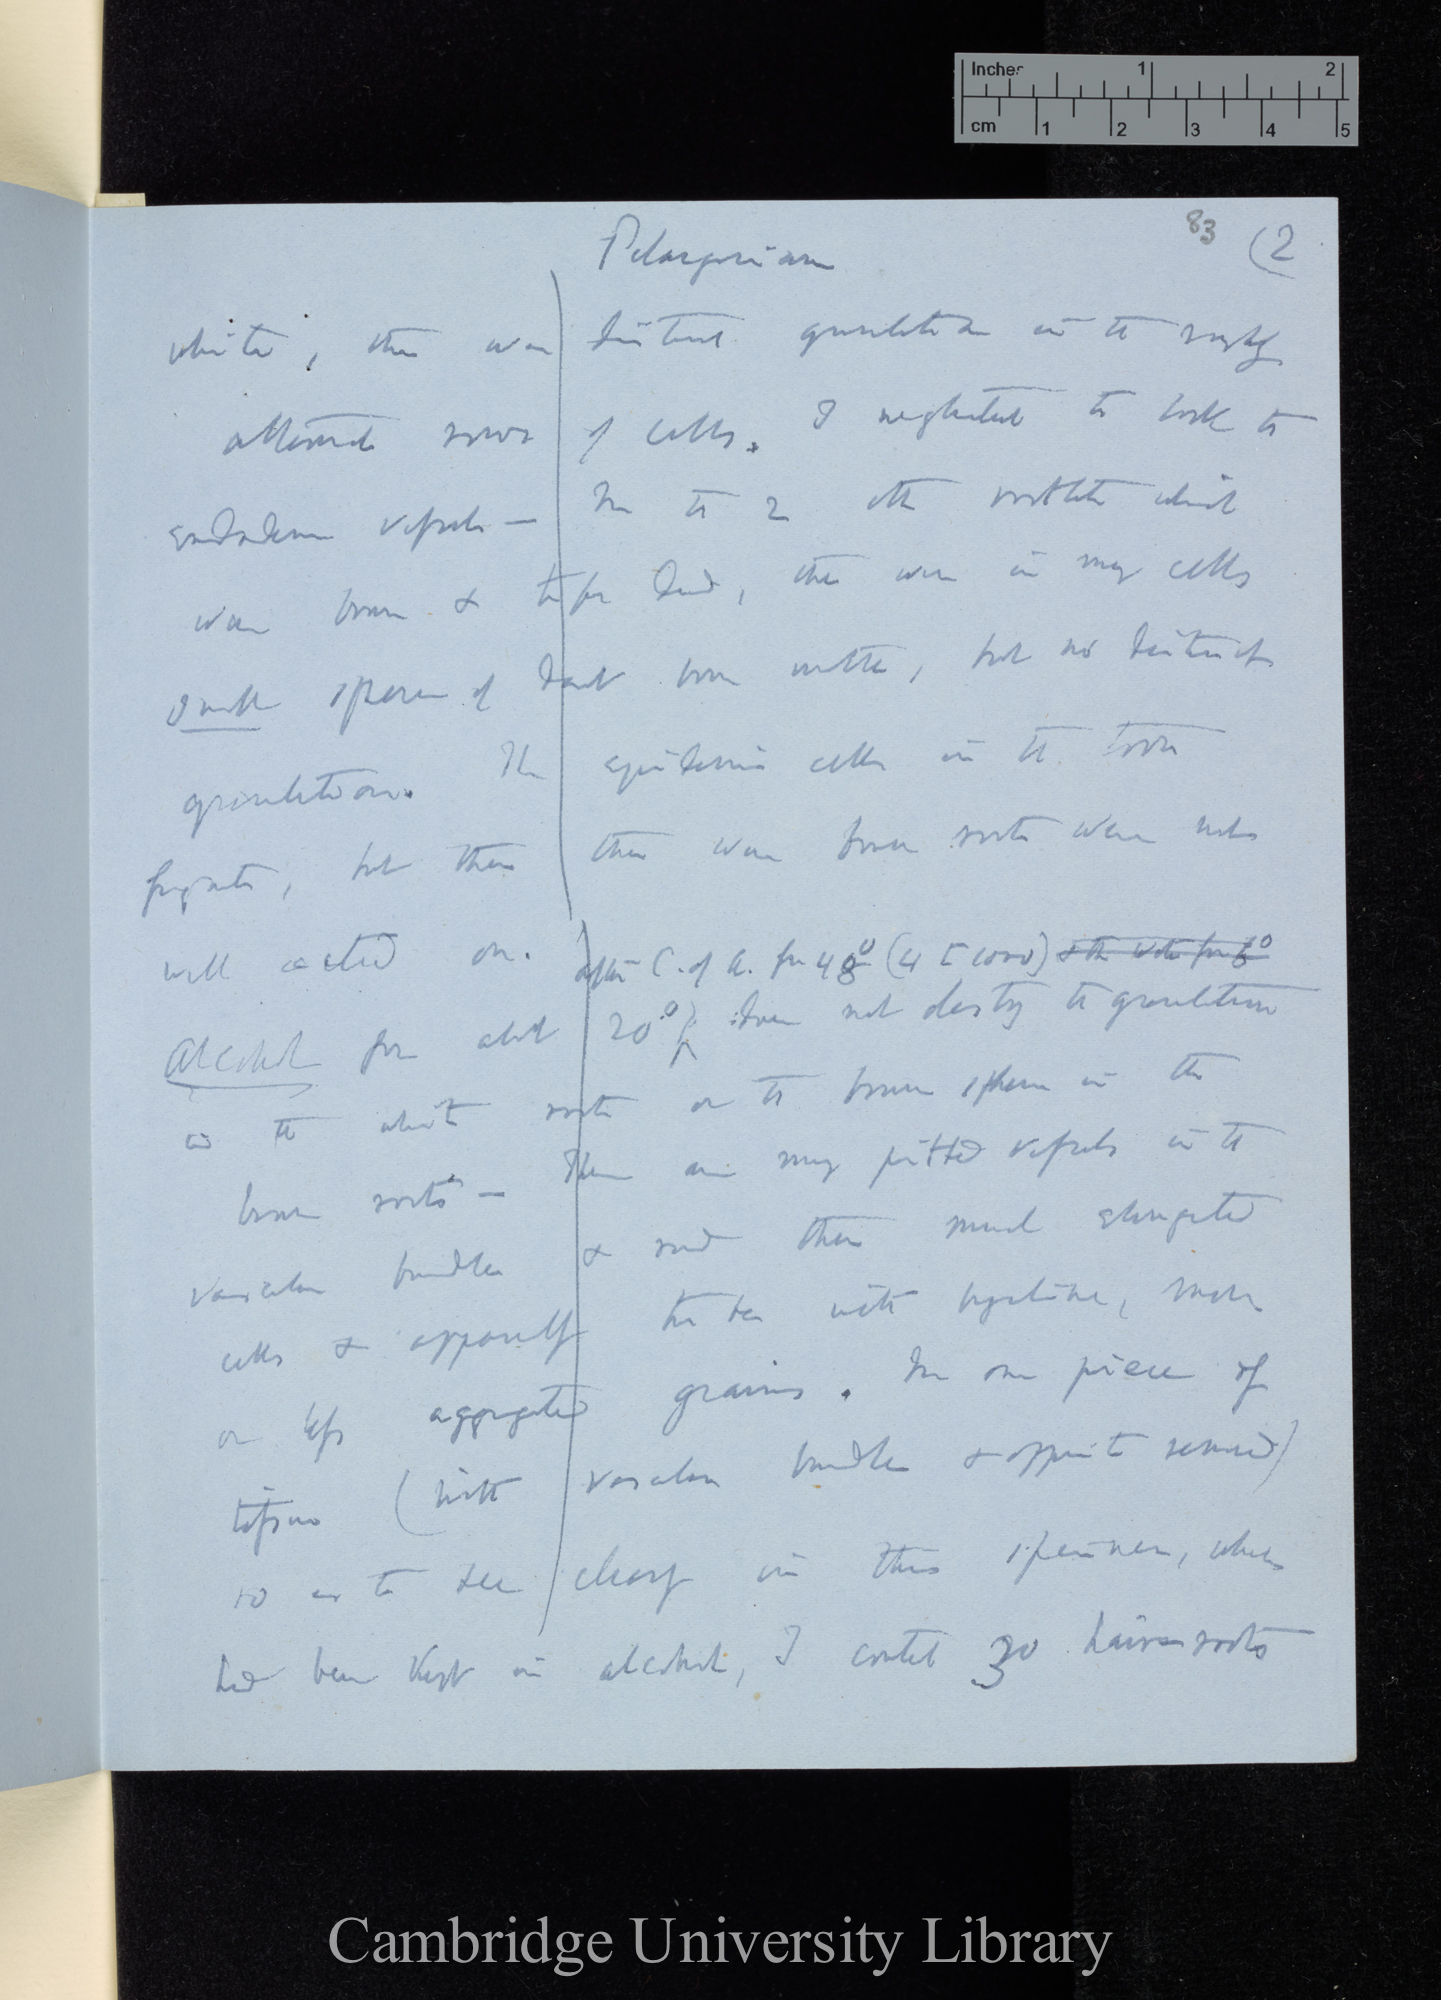 Inches 1 2
cm 1 2 3 4 5
83 (2
Pelargonium
white, there was distinct granulation in the roughly
alternate rows of cells. I neglected to look to
endoderm vessels — In the 2 other rootlets which
were brown & therefore dead, there were in many cells
small spheres of dark brown matter, but no distinct
granulation. The epidermic cells in the
but these were brown roots were not
well acted on.
after C. of A. for 48° (4 to 1000) & then water for
Alcohol for about 20°, does not destroy the granulation
in the white roots or the brown spheres in the
brown roots — There are many pitted vessels in the
vascular bundle & round these much elongated
cells & apparently tubes with hyaline, more
or less aggregated grains. In one piece of
tissue (with vascular bundle & opposite removed)
so as to see clearly in this specimen, which
had been kept in alcohol, I counted 30 hairs roots
Cambridge University Library